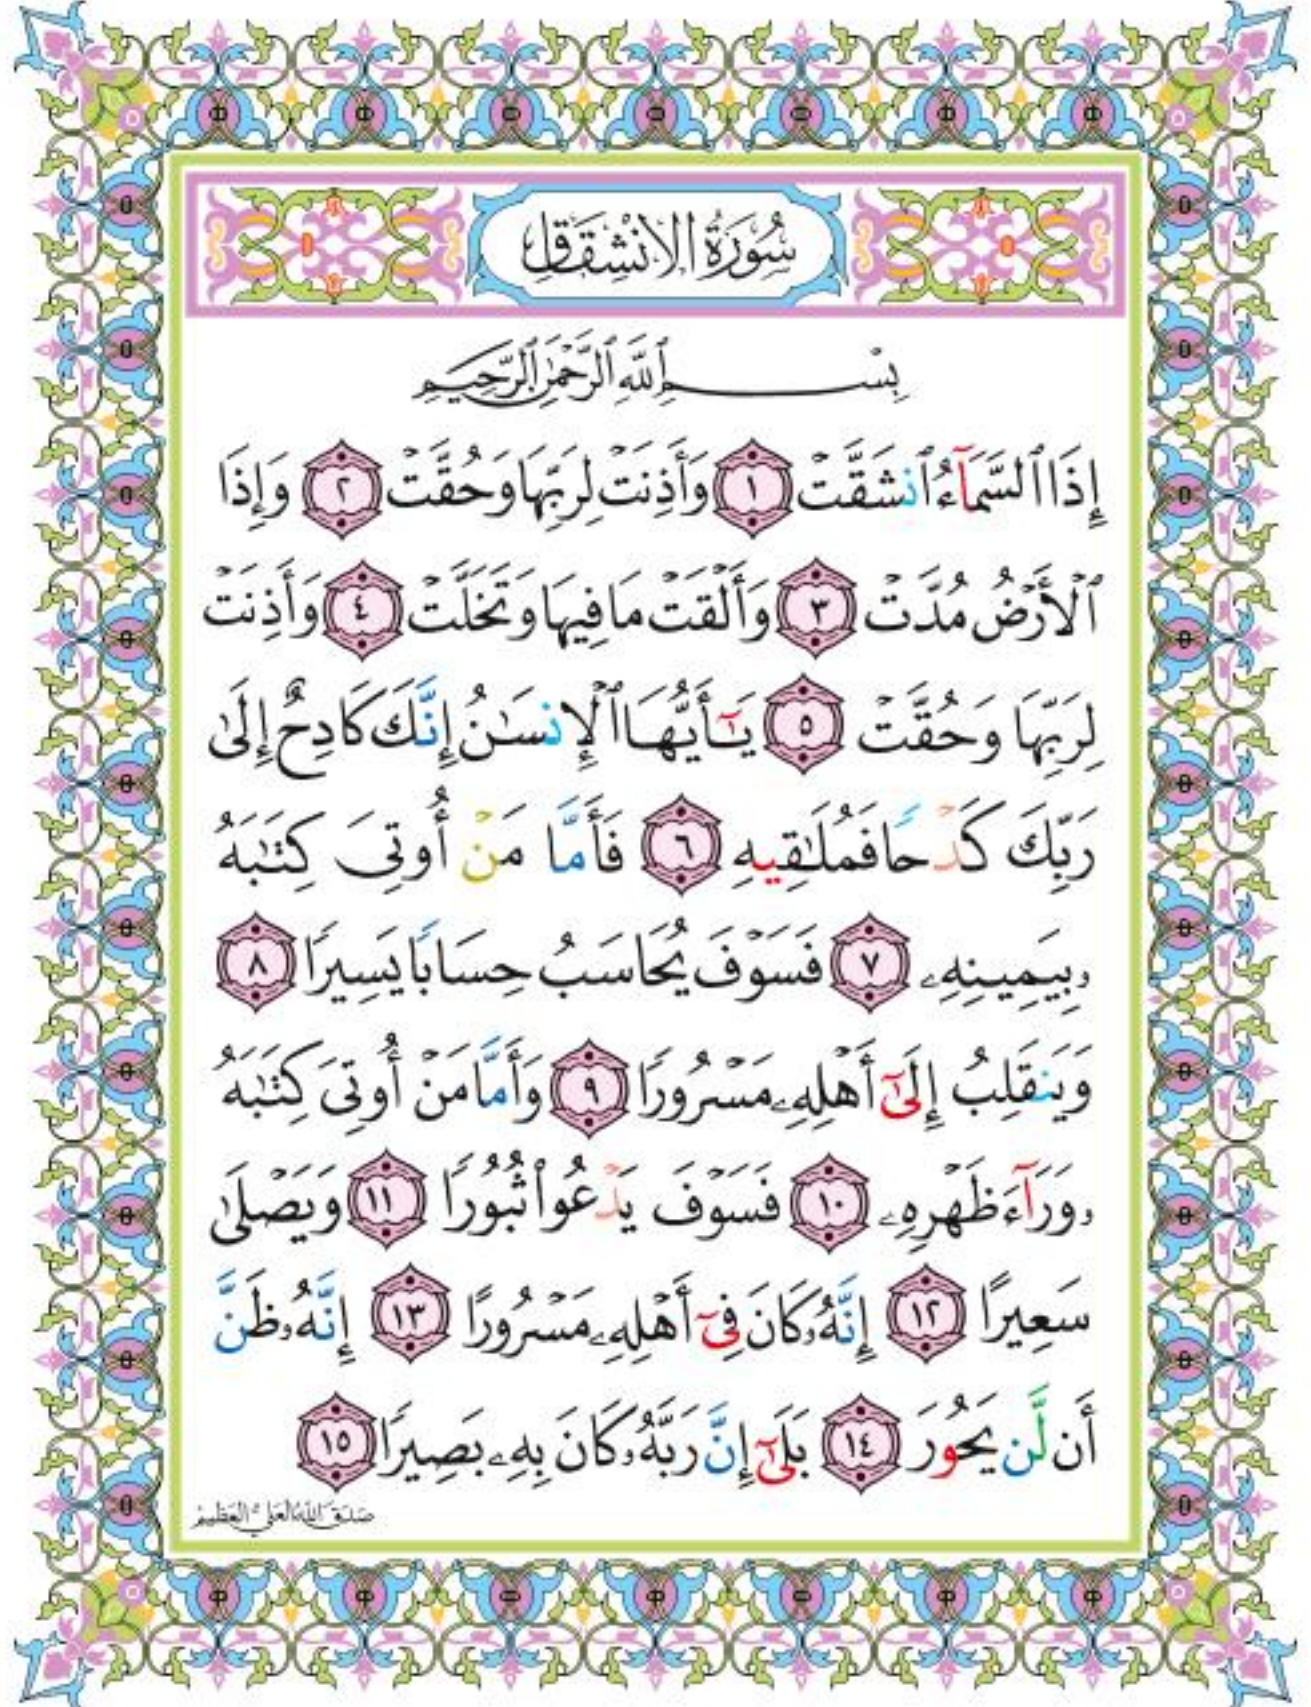 سُورَةُ الِانْشِقَاقِ
بِسْمِ ٱللَّهِ ٱلرَّحْمَٰنِ ٱلرَّحِيمِ
إِذَا ٱلسَّمَآءُ ٱنشَقَّتْ ١ وَأَذِنَتْ لِرَبِّهَا وَحُقَّتْ ٢ وَإِذَا
ٱلْأَرْضُ مُدَّتْ ٣ وَأَلْقَتْ مَا فِيهَا وَتَخَلَّتْ ٤ وَأَذِنَتْ
لِرَبِّهَا وَحُقَّتْ ٥ يَٰٓأَيُّهَا ٱلْإِنسَٰنُ إِنَّكَ كَادِحٌ إِلَىٰ
رَبِّكَ كَدْحًا فَمُلَٰقِيهِ ٦ فَأَمَّا مَنْ أُوتِىَ كِتَٰبَهُ
ۥبِيَمِينِهِۦ ٧ فَسَوْفَ يُحَاسَبُ حِسَابًا يَسِيرًا ٨
وَيَنقَلِبُ إِلَىٰٓ أَهْلِهِۦ مَسْرُورًا ٩ وَأَمَّا مَنْ أُوتِىَ كِتَٰبَهُ
ۥوَرَآءَ ظَهْرِهِۦ ١٠ فَسَوْفَ يَدْعُوا۟ ثُبُورًا ١١ وَيَصْلَىٰ
سَعِيرًا ١٢ إِنَّهُۥ كَانَ فِىٓ أَهْلِهِۦ مَسْرُورًا ١٣ إِنَّهُۥ ظَنَّ
أَن لَّن يَحُورَ ١٤ بَلَىٰٓ إِنَّ رَبَّهُۥ كَانَ بِهِۦ بَصِيرًا ١٥
صَدَقَ اللهُ العَلِيُّ العَظِيمُ